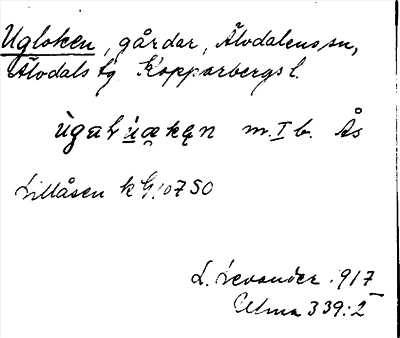 Ugloken, gårdar, Älvdalens sn,
Älvdals tg Kopparbergs l.
m. I b. Ås
Lillåsen k G 10750
L. Levander 1917
Ulma 339:2